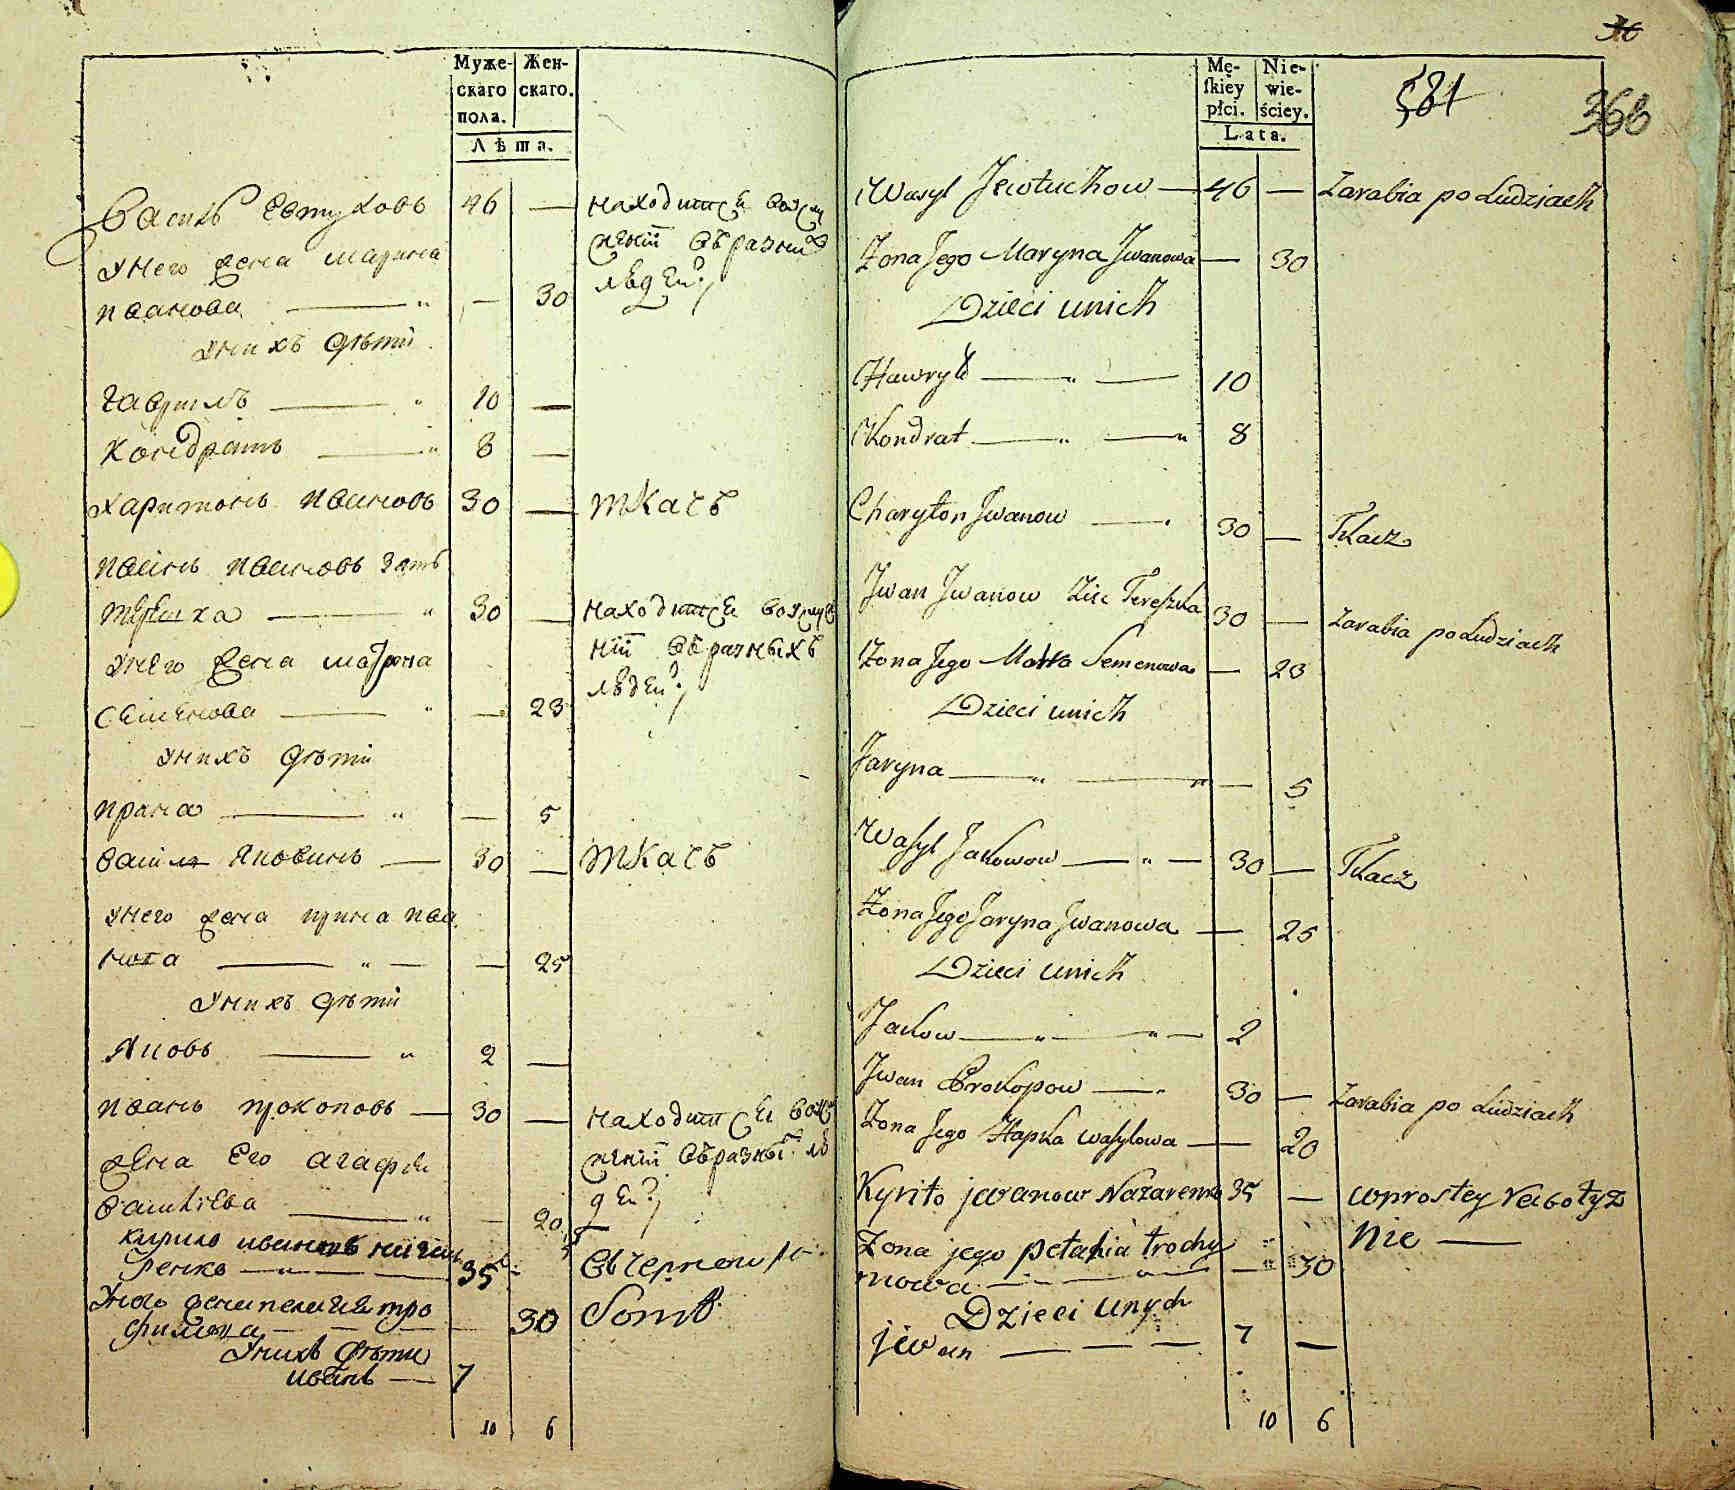 Муже-
скаго
пола.
Жен-
скаго.
Лѣта.
Василь Евтуховъ 46 — находится в услу
у него жена Марина жений въ разных
иванова — " — 30 людей
у нихъ дѣти
Гаврилъ — " 10 —
Кондратъ — " 8 —
Харитонъ ивановъ 30 — ткачъ
иванъ ивановъ зять
терешка — " 30 — находится в услуже
у него жена матрона нiи въ разныхъ
Семенова — " — 23 людей
у нихъ дѣти
ирина — " — 5
Васил Яковинъ — 30 — ткачъ
у него жена ирина ива
нова — " — — 25
у нихъ дѣти
Яковъ — " 2 —
иванъ прокоповъ — 30 — находится в услу
жена Его агафия жений въ разных лю
Василиева — " — 20 дей
Кирило ивановъ
ренко — " — — 35 — въ черной ра
у него жена пелагия тро
фимова — — — — 30 боте
у нихъ дѣти
иванъ — 7
10 6
36
581
368
Mę-
ſkiey
płci.
Nie-
wie-
ściey.
Lata.
Wasyl Jewtuchow — 46 — Zarabia po Ludziach
Zona Jego Maryna Jwanowa — 30
Dzieci unich
Hawryło — " — 10
Kondrat — " — " 8
Charyton Jwanow — " 30 — Tkacz
Jwan Jwanow Zięc Tereszka 30 — Zarabia po Ludziach
Zona Jego Semenowa — 23
Dzieci unich
Jaryna — " — " — 5
Wasyl Jakowow — " — 30 — Tkacz
Zona Jego Jaryna Jwanowa — 25
Dzieci unich
Jakow — " — " — 2
Jwan Prokopow — " 30 — Zarabia po Ludziach
Zona Jego Hapka Wasylowa — 20
Kyriło jwanow Nazarenko 35 — wprostey Robotyz
Zona jego pełahia trochy " 30 nie —
mowa — " — —
Dzieci unych
jwan — — — 7 —
10 6